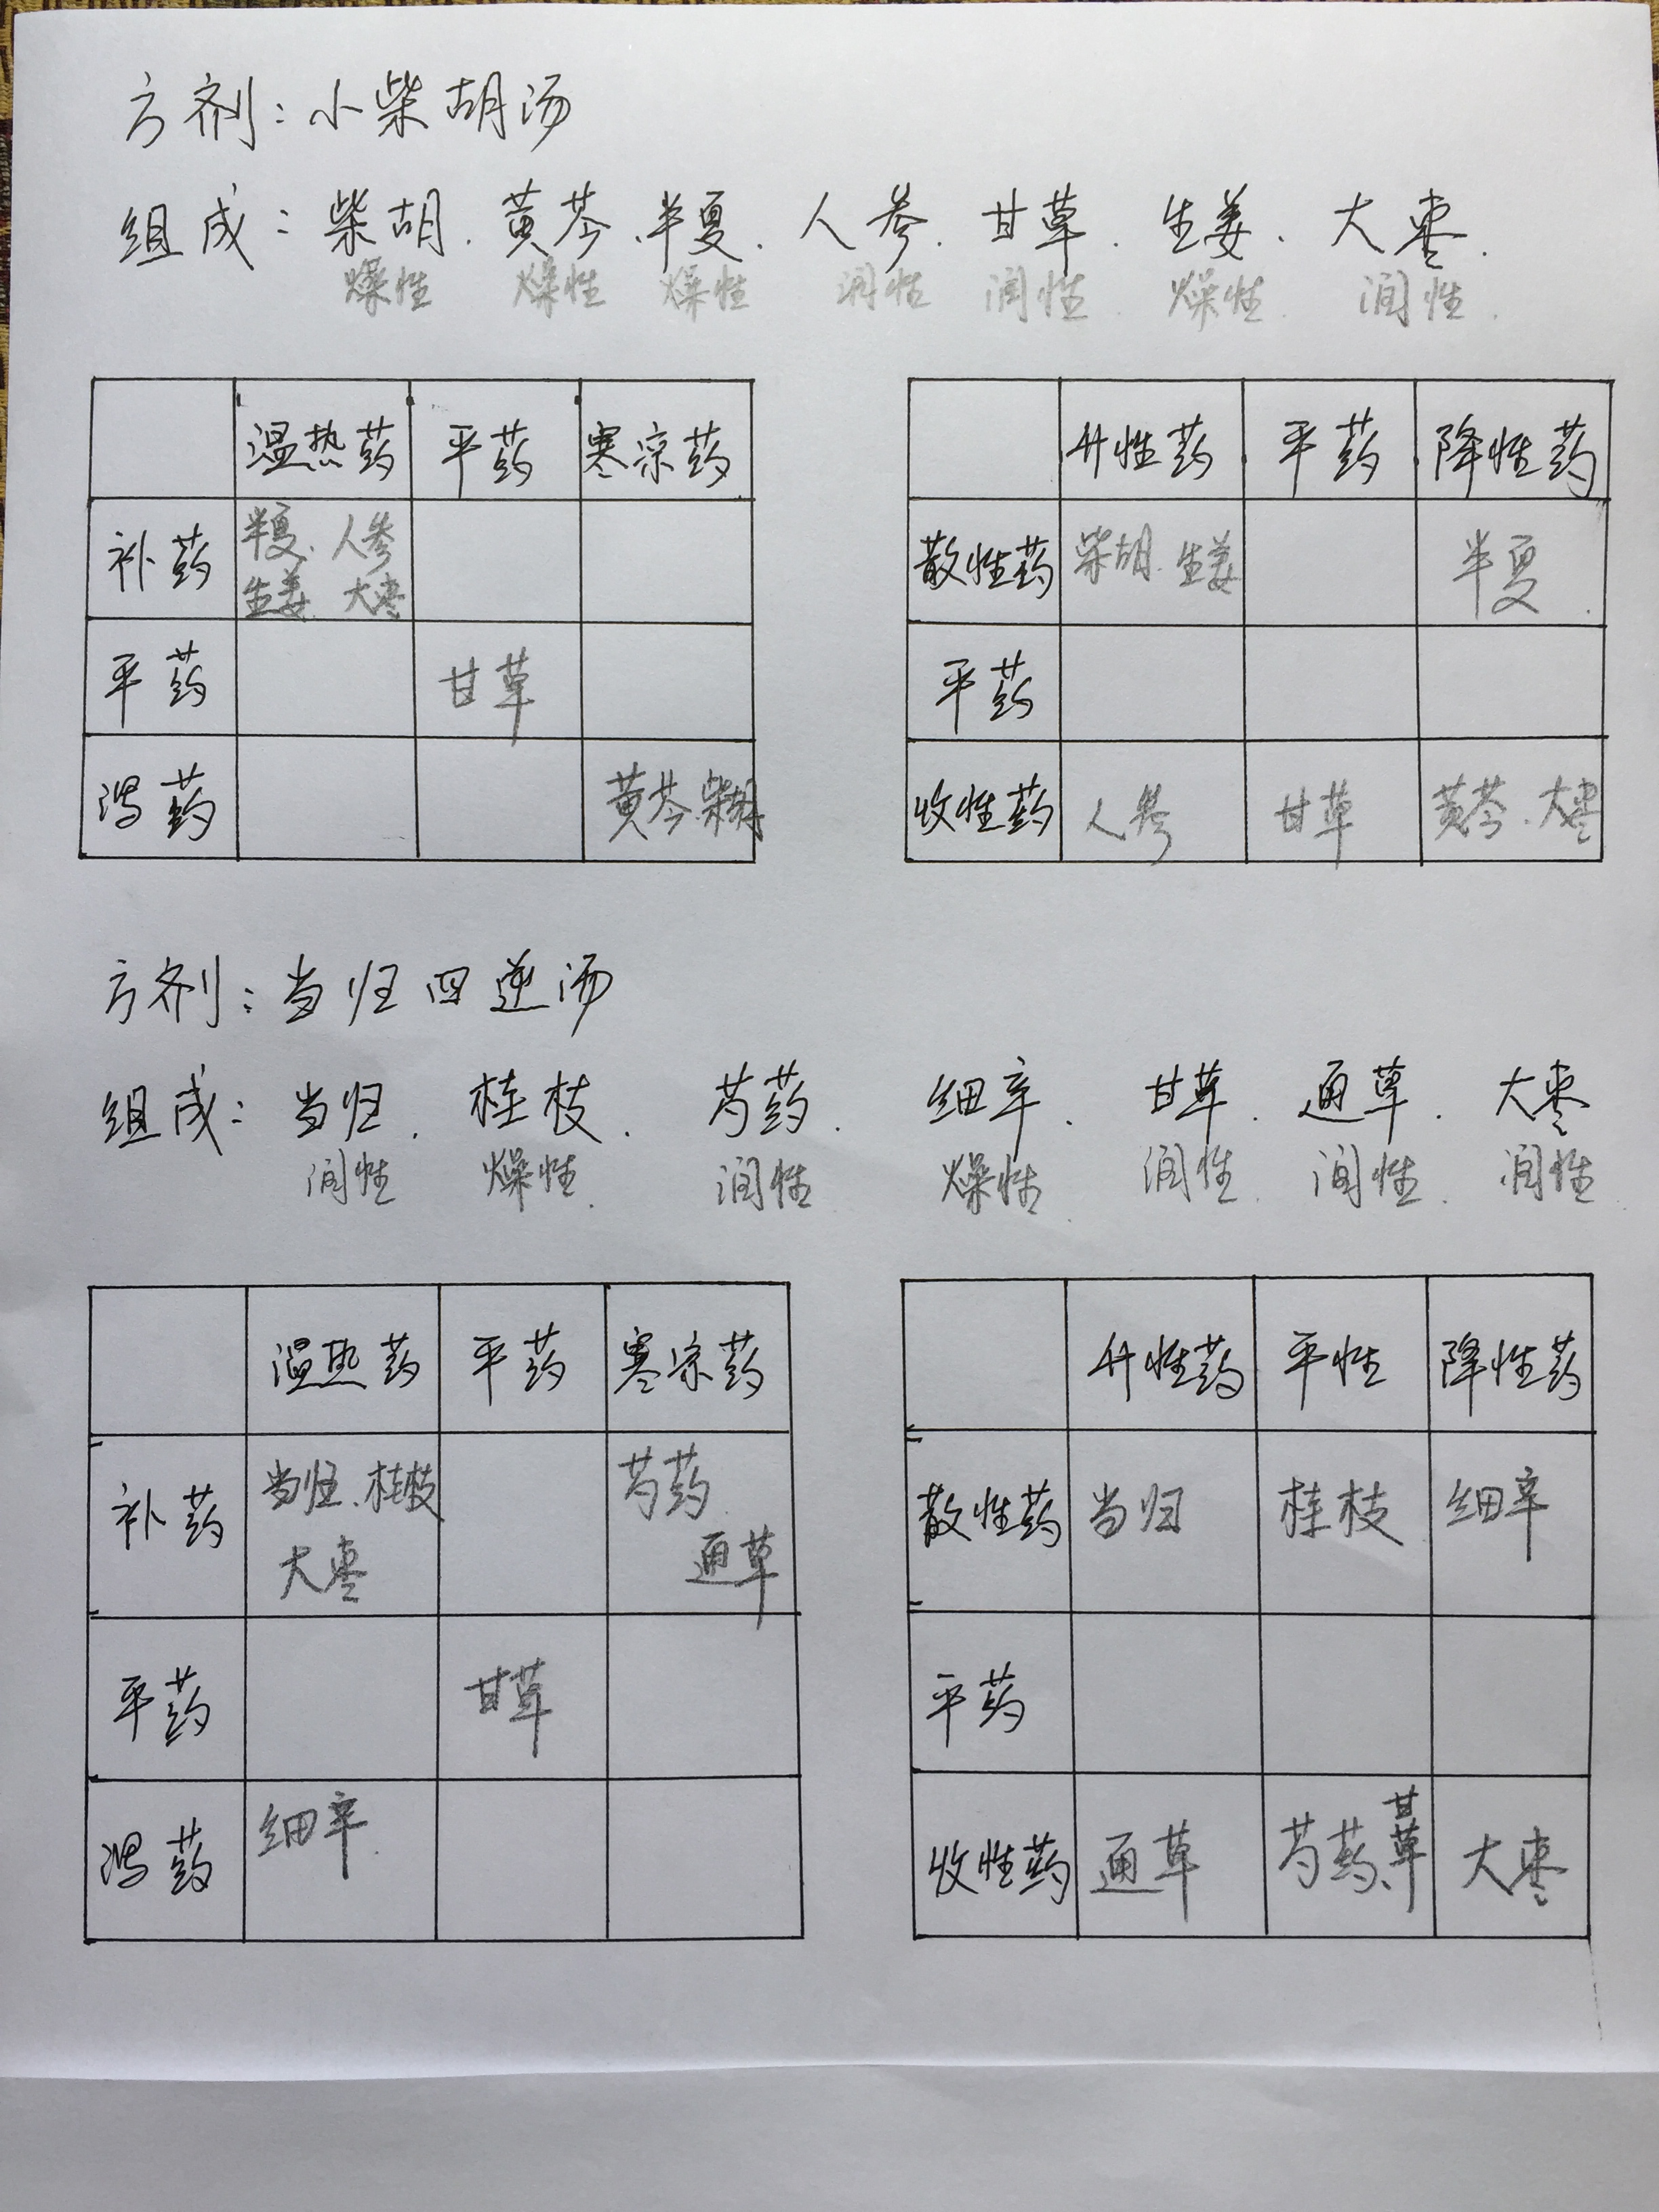 方剂：小柴胡汤
组成：柴胡、黄芩、半夏、人参、甘草、生姜、大枣.
燥性 燥性 燥性 润性 润性 燥性 润性
温热药 平药 寒凉药
补药 半夏、人参
生姜 大枣
平药 甘草
泻药 黄芩、柴胡
升性药 平药 降性药
散性药 柴胡 生姜 半夏
平药
收性药 人参 甘草 黄芩、大枣
方剂：当归四逆汤
组成：当归、桂枝、芍药、细辛、甘草、通草、大枣
润性 燥性 润性 燥性 润性 润性 润性
温热药 平药 寒凉药
补药 当归、桂枝 芍药
大枣 通草
平药 甘草
泻药 细辛
升性药 平性 降性药
散性药 当归 桂枝 细辛
平药
收性药 通草 芍药、甘草 大枣